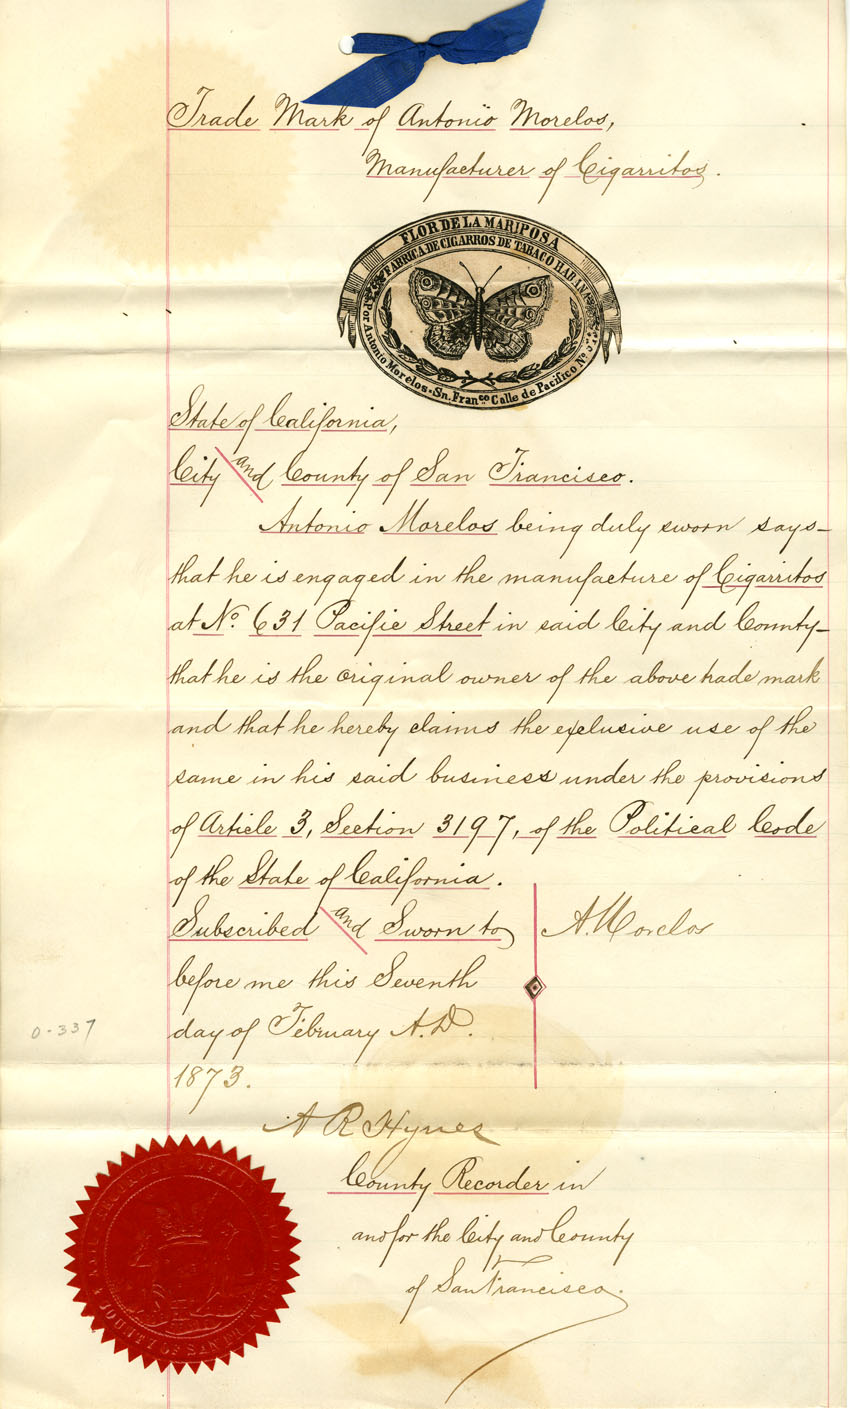 Trade Mark of Antonio Morelos,
Manufacturer of Cigarritos.
FLOR DE LA MARIPOSA
FABRICA DE CIGARROS DE TABACO HABANA
Por Antonio Morelos. Sn. Franco Calle de Pacifico No
State of California,
City and County of San Francisco.
Antonio Morelos being duly sworn says—
that he is engaged in the manufacture of Cigarritos
at No. 631 Pacific Street in said City and County—
that he is the original owner of the above trade mark
and that he hereby claims the exclusive use of the
same in his said business under the provisions
of Article 3, Section 3197, of the Political Code
of the State of California.
Subscribed and Sworn to
before me this Seventh
day of February A.D.
1873.
A. Morelos
O-337
A R Hynes
County Recorder in
and for the City and County
of San Francisco.